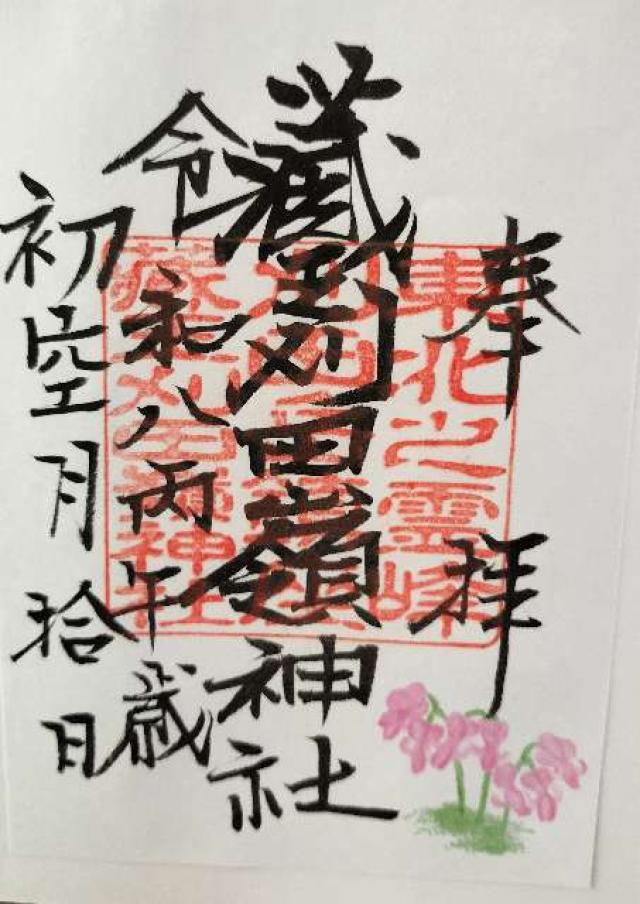 奉拝
蔵王刈田嶺神社
令和八丙午歳
初空月拾日
東北之霊峰
蔵王刈田嶺神社